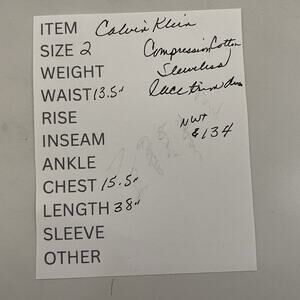 ITEM Calvin Klein
SIZE 2 Compression Cotton
WEIGHT Sleeveless
WAIST 13.5" Lace trim
RISE
NWT
INSEAM $134
ANKLE
CHEST 15.5"
LENGTH 38"
SLEEVE
OTHER